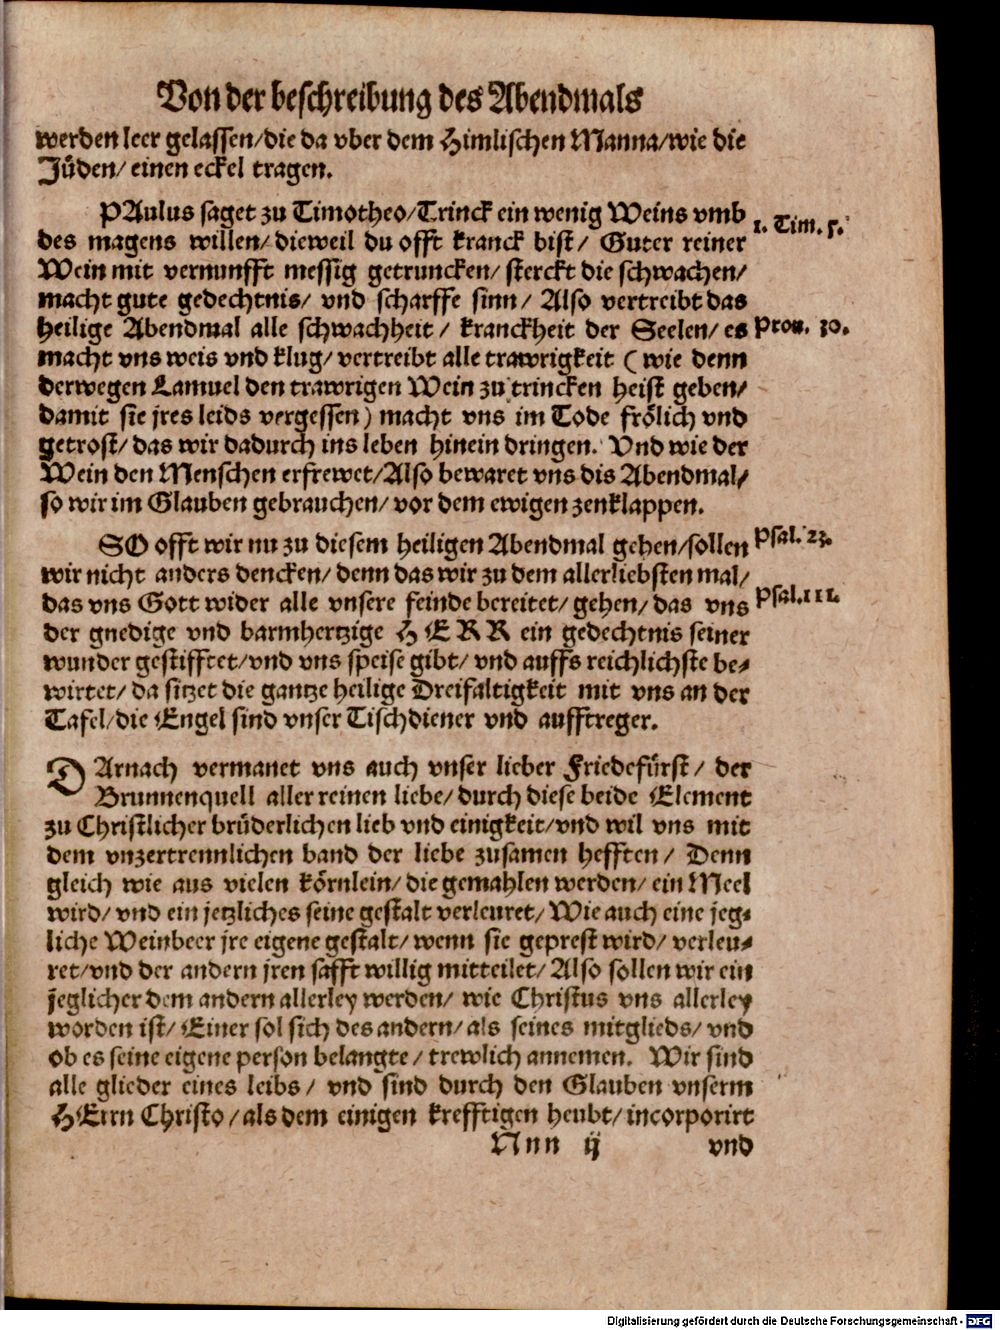 Von der beschreibung des Abendmals
werden leer gelassen/die da vber dem Himlischen Manna/wie die
Jüden/ einen eckel tragen.
PAulus saget zu Timotheo/Trinck ein wenig Weins vmb
1. Tim. 5.
des magens willen/dieweil du offt kranck bist/ Guter reiner
Wein mit vernunfft messig getruncken/ sterckt die schwachen/
macht gute gedechtnis/ vnd scharffe sinn/ Also vertreibt das
heilige Abendmal alle schwachheit/ kranckheit der Seelen/ es
Prou. 30.
macht vns weis vnd klug/ vertreibt alle trawrigkeit (wie denn
derwegen Lamuel den trawrigen Wein zu trincken heist geben/
damit sie jres leids vergessen) macht vns im Tode frölich vnd
getrost/ das wir dadurch ins leben hinein dringen. Vnd wie der
Wein den Menschen erfrewet/Also bewaret vns dis Abendmal/
so wir im Glauben gebrauchen/ vor dem ewigen zenklappen.
SO offt wir nu zu diesem heiligen Abendmal gehen/sollen
Psal. 23.
wir nicht anders dencken/ denn das wir zu dem allerliebsten mal/
das vns Gott wider alle vnsere feinde bereitet/ gehen/ das vns
Psal. 111.
der gnedige vnd barmhertzige HERR ein gedechtnis seiner
wunder gestifftet/vnd vns speise gibt/ vnd auffs reichlichste be-
wirtet/ da sitzet die gantze heilige Dreifaltigkeit mit vns an der
Tafel/die Engel sind vnser Tischdiener vnd aufftreger.
DArnach vermanet vns auch vnser lieber Friedefürst/ der
Brunnenquell aller reinen liebe/ durch diese beide Element
zu Christlicher brüderlichen lieb vnd einigkeit/vnd wil vns mit
dem vnzertrennlichen band der liebe zusamen hefften/ Denn
gleich wie aus vielen körnlein/ die gemahlen werden/ ein Meel
wird/ vnd ein jetzliches seine gestalt verleuret/ Wie auch eine jeg-
liche Weinbeer jre eigene gestalt/ wenn sie geprest wird/ verleu-
ret/vnd der andern jren safft willig mitteilet/ Also sollen wir ein
jeglicher dem andern allerley werden/ wie Christus vns allerley
worden ist/ Einer sol sich des andern/ als seines mitglieds/ vnd
ob es seine eigene person belangte/ trewlich annemen. Wir sind
alle glieder eines leibs/ vnd sind durch den Glauben vnserm
HErrn Christo/ als dem einigen krefftigen heubt/ incorporirt
Nnn ij vnd
Digitalisierung gefördert durch die Deutsche Forschungsgemeinschaft - DFG